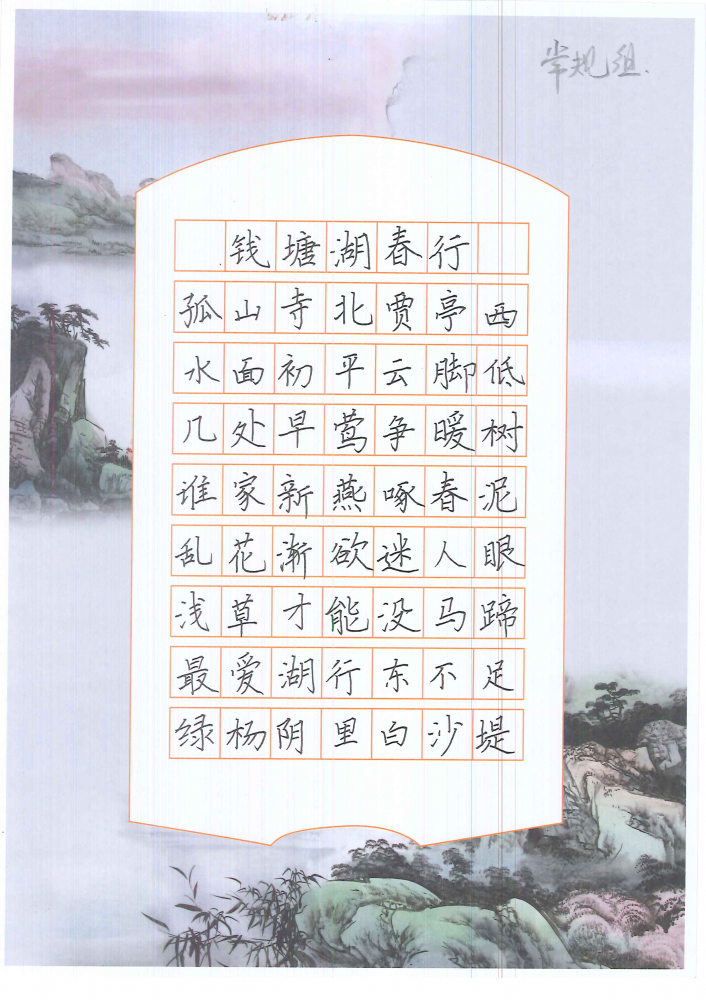 常规组.
钱塘湖春行
孤山寺北贾亭西
水面初平云脚低
几处早莺争暖树
谁家新燕啄春泥
乱花渐欲迷人眼
浅草才能没马蹄
最爱湖行东不足
绿杨阴里白沙堤